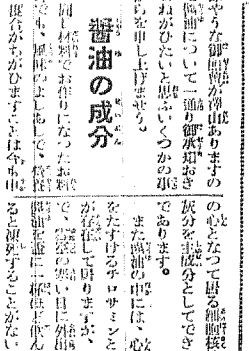 やうな御質問が澤山ありますの
醤油について一通り御承知おき
ねがひたいと思ふいくつかの事
らを申し上げませう。
醤油の成分
同じ材料でお作りになつたお料
でも、風味のよしあしで、
度合がちがひますことは今も申
の心となつて居る細胞核
灰分を主成分としてでき
であります。
また醤油の中には、心
をたすけるチロサミンと
が存在して居りますが、
で、の寒い日に外出
醤油を盃に一杯ほど飲ん
ると凍死することがない